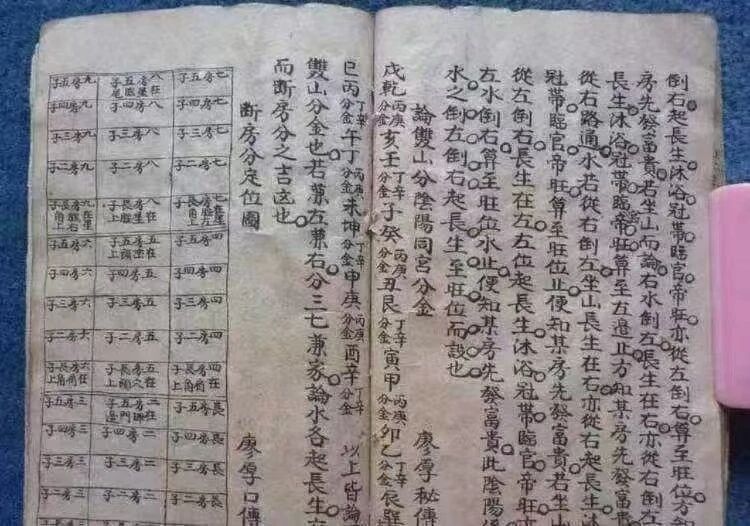 倒右起長生沐浴冠帶臨官帝旺亦從左倒右尊至旺位方
房先發富貴若坐山而論右水倒左長生在右亦從右倒
長生沐浴冠帶臨官帝旺尊至左邉止方知某房先發富
從右路通水若從右倒左坐山長生在右亦從右起長生
冠帶臨官帝旺尊至旺位止便知某房先發富貴若坐山
從左倒右長生在左左位起長生沐浴冠帶臨官帝旺
左水倒右尊至旺位水止便知某房先發富貴此陰陽
水之倒左倒右起長生至旺位而設也
論雙山分陰陽同宮分金 廖厚秘傳
戌乾丙庚分金亥壬丁辛分金子癸丙庚分金丑艮丁辛分金寅甲丙庚分金卯乙丁辛分金辰巽
巳丙丁辛分金午丁丙庚分金未坤丁辛分金申庚丙庚分金酉辛丁辛分金以上皆論
雙山分金也若兼左兼右分三七兼家論水各起長生
而断房分之吉凶也
断房分定位圖 廖厚口傳
七房五子
七房四子
七房三子
七房二子
四房五子
四房四子
四房三子
四房二子
長房五子
長房四子
長房三子
長房二子
八房四子
八房三子
八房二子
五房四子
五房三子
五房二子
二房四子
二房三子
二房二子
九房五子
九房四子
九房三子
九房二子
六房五子
六房四子
六房三子
六房二子
三房五子
三房四子
三房三子
三房二子